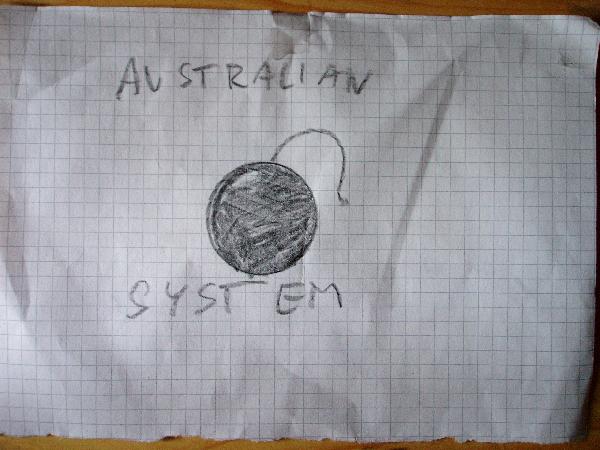 AUSTRALIAN
SYSTEM